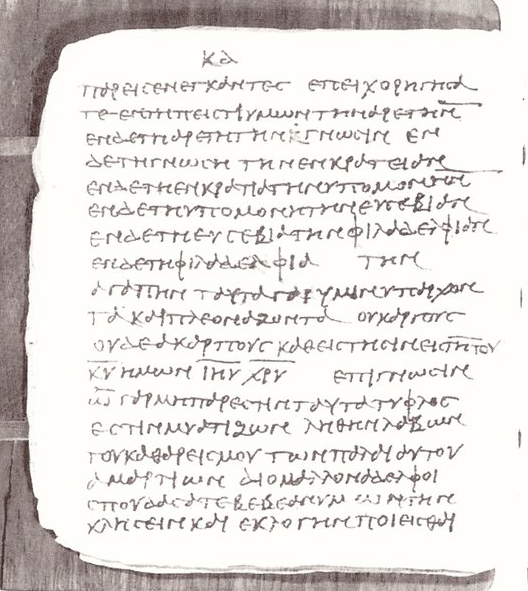 κα
παρειϲενεγκαντεϲ επειχορηγηϲα
τε εντηπειϲτιυμωντηναρετην
ενδετηαρετητηνγνωϲιν εν
δετηγνωϲι τηνενκρατειαν
ενδετηενκρατιατηνυπομονην
ενδετηυπομονητηνευϲεβιαν
ενδετηευϲεβιατηνφιλαδελφιαν
ενδετηφιλαδελφια την
αγαπην ταυταγαρυμινυπαρχον
τα καιπλεοναζοντα ουκαργουϲ
ουδεακαρπουϲ καθειϲτηϲινειϲτηντου
κυ ημων ιηυ χρυ επιγνωϲιν
ω γαρμηπαρεϲτινταυτατυφλοϲ
εϲτινμυατιζων ληθηνλαβων
τουκαθαρειϲμου τωνπαλαιαυτου
αμαρτιων διομαλλοναδελφοι
ϲπουδαϲατεβεβεανυμωντην
κληϲειν και εκλογηνποιειϲθαι